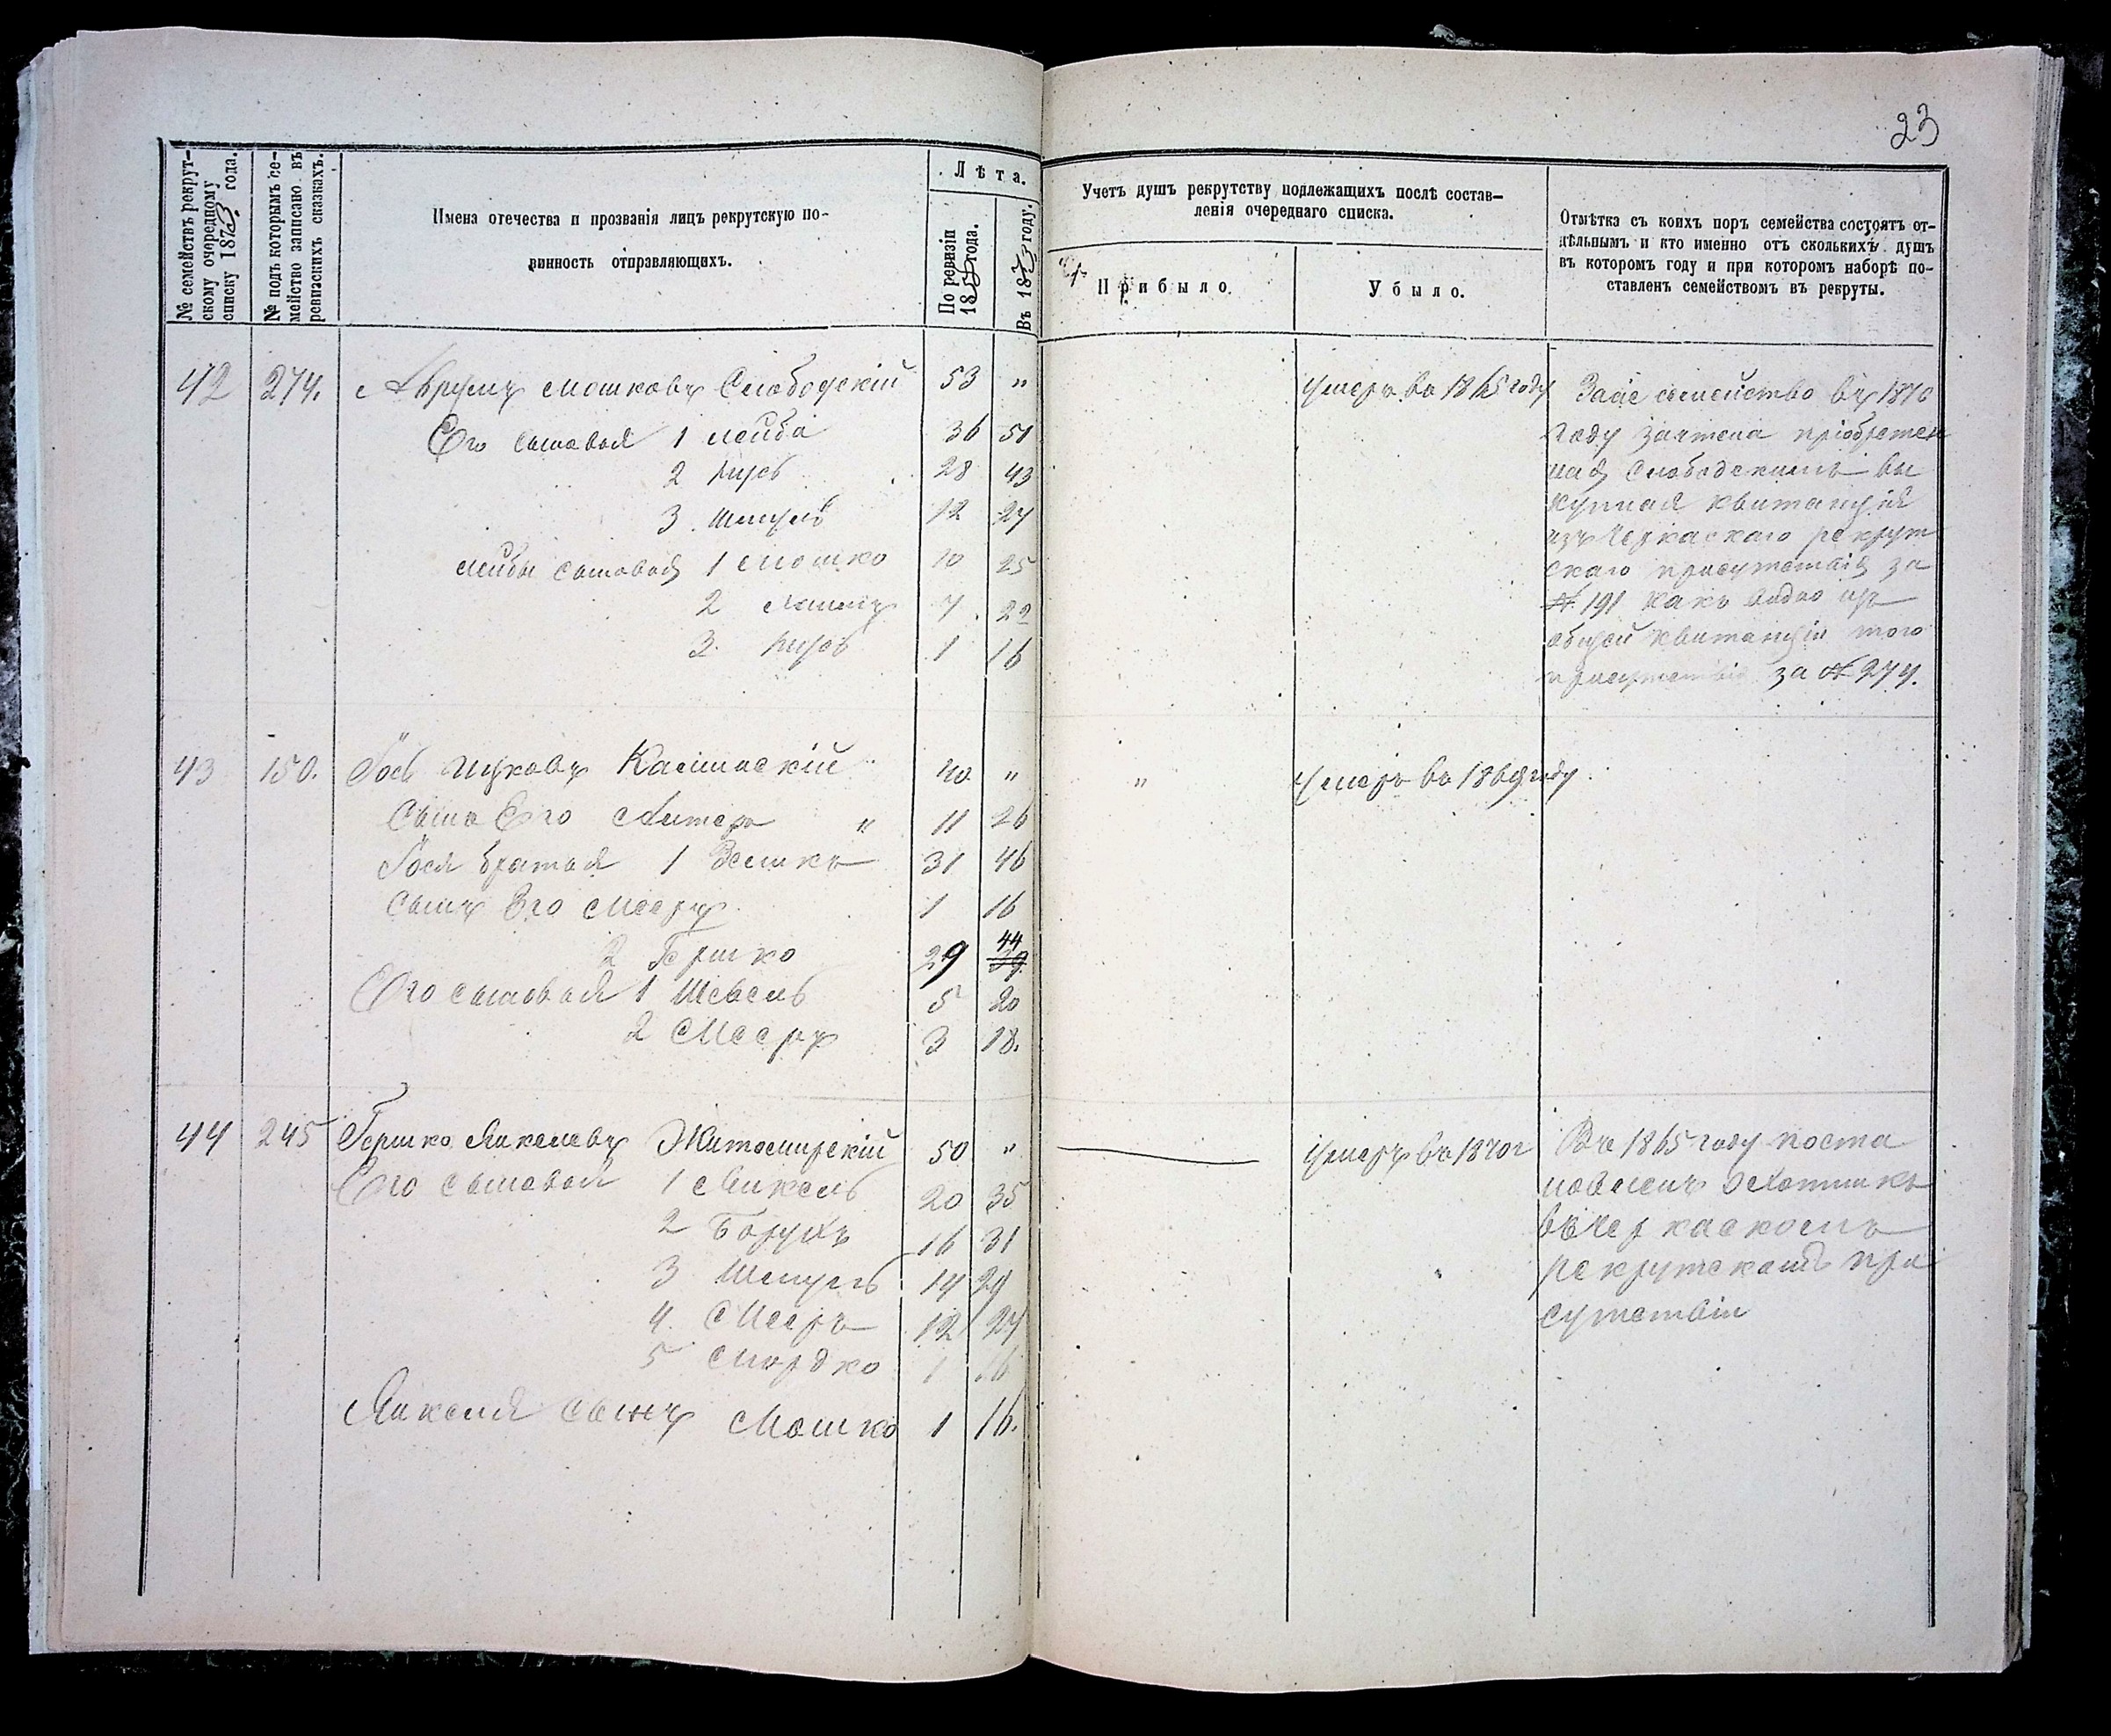 23
№ семействъ рекрут-
скому очередному
списку 1873 года.
№ подъ которымъ се-
мейство записано въ
ревизскихъ сказкахъ.
Имена отечества и прозванія лицъ рекрутскую по-
винность отправляющихъ.
Лѣта.
По ревизіи
1858 года.
Въ 1873 году.
Учетъ душъ рекрутству подлежащихъ послѣ состав-
ленія очереднаго списка.
Прибыло.
Убыло.
Отмѣтка съ коихъ поръ семейства состоятъ от-
дѣльнымъ и кто именно отъ сколькихъ душъ
въ которомъ году и при котормъ наборѣ по-
ставленъ семействомъ въ рекруты.
42 274. Абрумъ Мошковъ Слободскій 53 " Умеръ въ 1865 году
Его сыновья 1 Лейба 36 51
2 28 43
3. Шмуль 12 27
Лейбы сыновья 1 Мошко 10 25
2 7 22
3. 1 16
За семейство въ 1870
году зачтена пріобретен
ная Слободскимъ вы
купная квитанція
изъ Черкаскаго рекрут
скаго присутствія за
№ 191 какъ видно изъ
общей квитанціи того
присутствія за № 277.
43 150. Іось Ицковъ 40 " " Умеръ въ 1869 году
Сынъ Его Алтеръ " 11 26
Іося братья 1 Зеликъ 31 46
Сынъ Его Мееръ 1 16
2 Гершко 29 44 39
Его сыновья 1 Шевель 5 20
2 Мееръ 3 18.
44 245 Гершко Янкелевъ Житомирскій 50 " Умеръ въ 1870 г
Его сыновья 1 Янкель 20 35
2 Борухъ 16 31
3 Шмуль 14 29
4. Мееръ 12 27
5 Мордко 1 16
Янкеля сынъ Мошко 1 16.
Въ 1865 году поста
новленъ охотникъ
въ Черкаскомъ
рекрутскомъ при
сутствіи